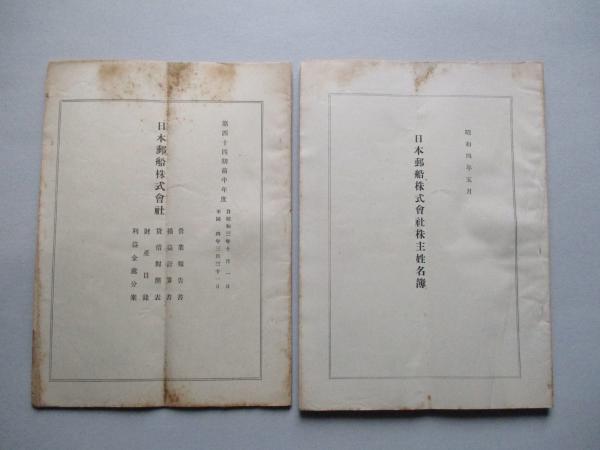 昭和四年五月
日本郵船株式會社株主姓名簿
第四十四期前半年度
自昭和三年十月一日
至同四年三月三十一日
日本郵船株式會社
營業報告書
損益計算書
貸借對照表
財產目錄
利益金處分案